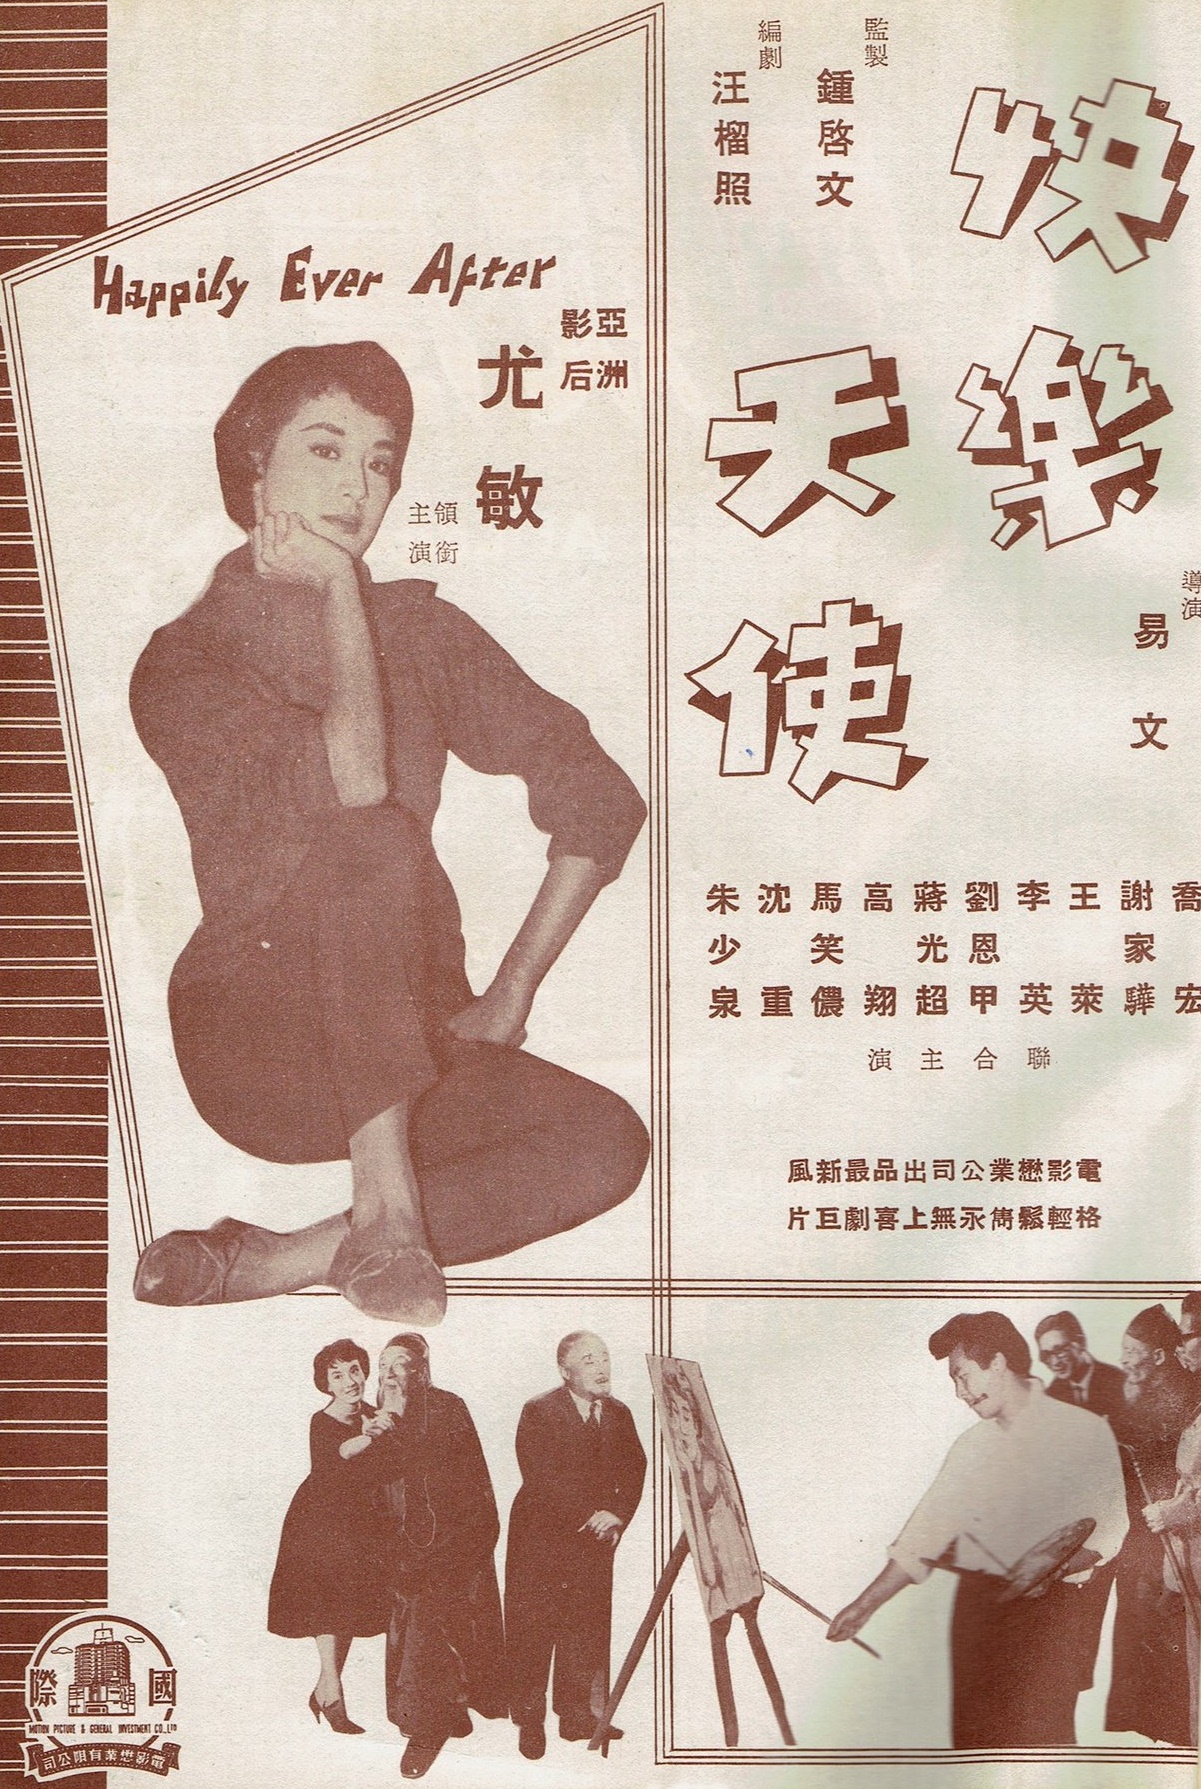 快樂
天使
監製
鍾啓文
編劇
汪榴照
導演
易文
Happily Ever After
亞洲
影后
尤敏
領銜
主演
喬宏
謝家驊
王萊
李英
劉恩甲
蔣光超
高翔
馬笑儂
沈重
朱少泉
聯合主演
電影懋業公司出品最新風
格輕鬆雋永無上喜劇巨片
國際
MOTION PICTURE & GENERAL INVESTMENT CO., LTD
電影懋業有限公司